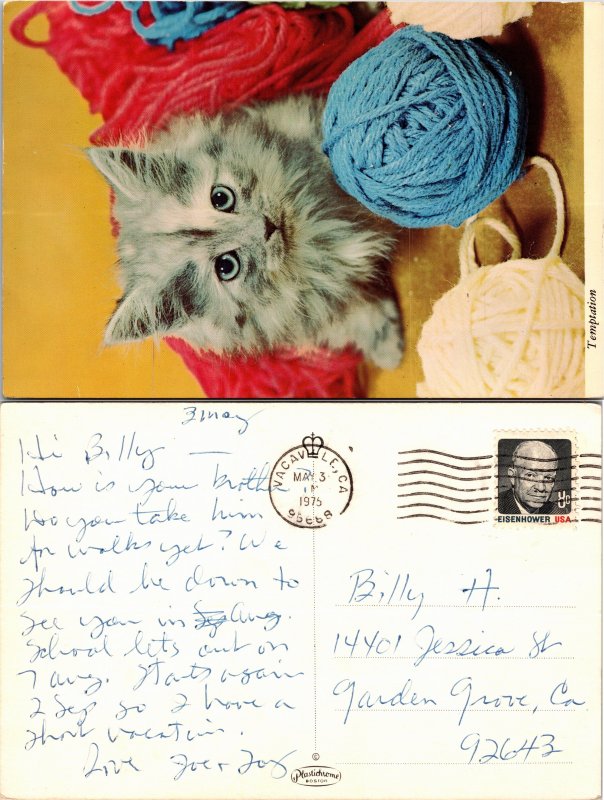 Temptation
3 May
Hi Billy —
How is your brother?
Do you take him
for walks yet? We
should be down to
see you in Aug.
School lets out on
7 Aug. Starts again
2 Sep so I have a
short vacation.
Love Joe + Joy
VACAVILLE, CA
MAY 3
1975
95688
EISENHOWER USA
Billy H.
14401 Jessica St
Garden Grove, Ca
92643
©
Plastichrome
BOSTON